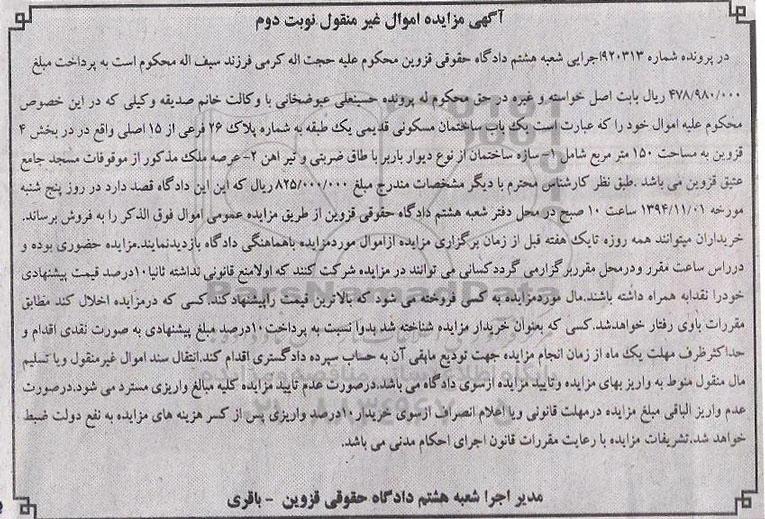 آگهی مزایده اموال غیر منقول نوبت دوم
در پرونده شماره ۹۲۰۳۱۳اجرایی شعبه هشتم دادگاه حقوقی قزوین محکوم علیه حجت اله کرمی فرزند سیف اله محکوم است به پرداخت مبلغ
۴۷۸/۹۸۰/۰۰۰ ریال بابت اصل خواسته و غیره در حق محکوم له پرونده حسینعلی عیوضخانی با وکالت خانم صدیقه وکیلی که در این خصوص
محکوم علیه اموال خود را که عبارت است یک باب ساختمان مسکونی قدیمی یک طبقه به شماره پلاک ۲۶ فرعی از ۱۵ اصلی واقع در در بخش ۴
قزوین به مساحت ۱۵۰ متر مربع شامل ۱- سازه ساختمان از نوع دیوار باربر با طاق ضربتی و تیر آهن ۲- عرصه ملک مذکور از موقوفات مسجد جامع
عتیق قزوین می باشد .طبق نظر کارشناس محترم با دیگر مشخصات مندرج مبلغ ۸۲۵/۰۰۰/۰۰۰ ریال که این این دادگاه قصد دارد در روز پنج شنبه
مورخه ۱۳۹۴/۱۱/۰۱ ساعت ۱۰ صبح در محل دفتر شعبه هشتم دادگاه حقوقی قزوین از طریق مزایده عمومی اموال فوق الذکر را به فروش برساند.
خریداران میتوانند همه روزه تایک هفته قبل از زمان برگزاری مزایده ازاموال موردمزایده باهماهنگی دادگاه بازدیدنمایند.مزایده حضوری بوده و
درراس ساعت مقرر ودرمحل مقرربرگزارمی گرددکسانی می توانند در مزایده شرکت کنند که اولامنع قانونی نداشته ثانیا۱۰درصد قیمت پیشنهادی
خودرا نقدابه همراه داشته باشند.مال موردمزایده به کسی فروخته می شود که بالاترین قیمت راپیشنهادکند.کسی که درمزایده اخلال کند مطابق
مقررات باوی رفتار خواهدشد.کسی که بعنوان خریدار مزایده شناخته شد بدوا نسبت به پرداخت۱۰درصد مبلغ پیشنهادی به صورت نقدی اقدام و
حداکثرظرف مهلت یک ماه از زمان انجام مزایده جهت تودیع مابقی آن به حساب سپرده دادگستری اقدام کند.انتقال سند اموال غیرمنقول ویا تسلیم
مال منقول منوط به واریز بهای مزایده وتایید مزایده ازسوی دادگاه می باشد.درصورت عدم تایید مزایده کلیه مبالغ واریزی مسترد می شود.درصورت
عدم واریز الباقی مبلغ مزایده درمهلت قانونی ویا اعلام انصراف ازسوی خریدار۱۰درصد واریزی پس از کسر هزینه های مزایده به نفع دولت ضبط
خواهد شد.تشریفات مزایده با رعایت مقررات قانون اجرای احکام مدنی می باشد.
مدیر اجرا شعبه هشتم دادگاه حقوقی قزوین - باقری
ParsNamadData